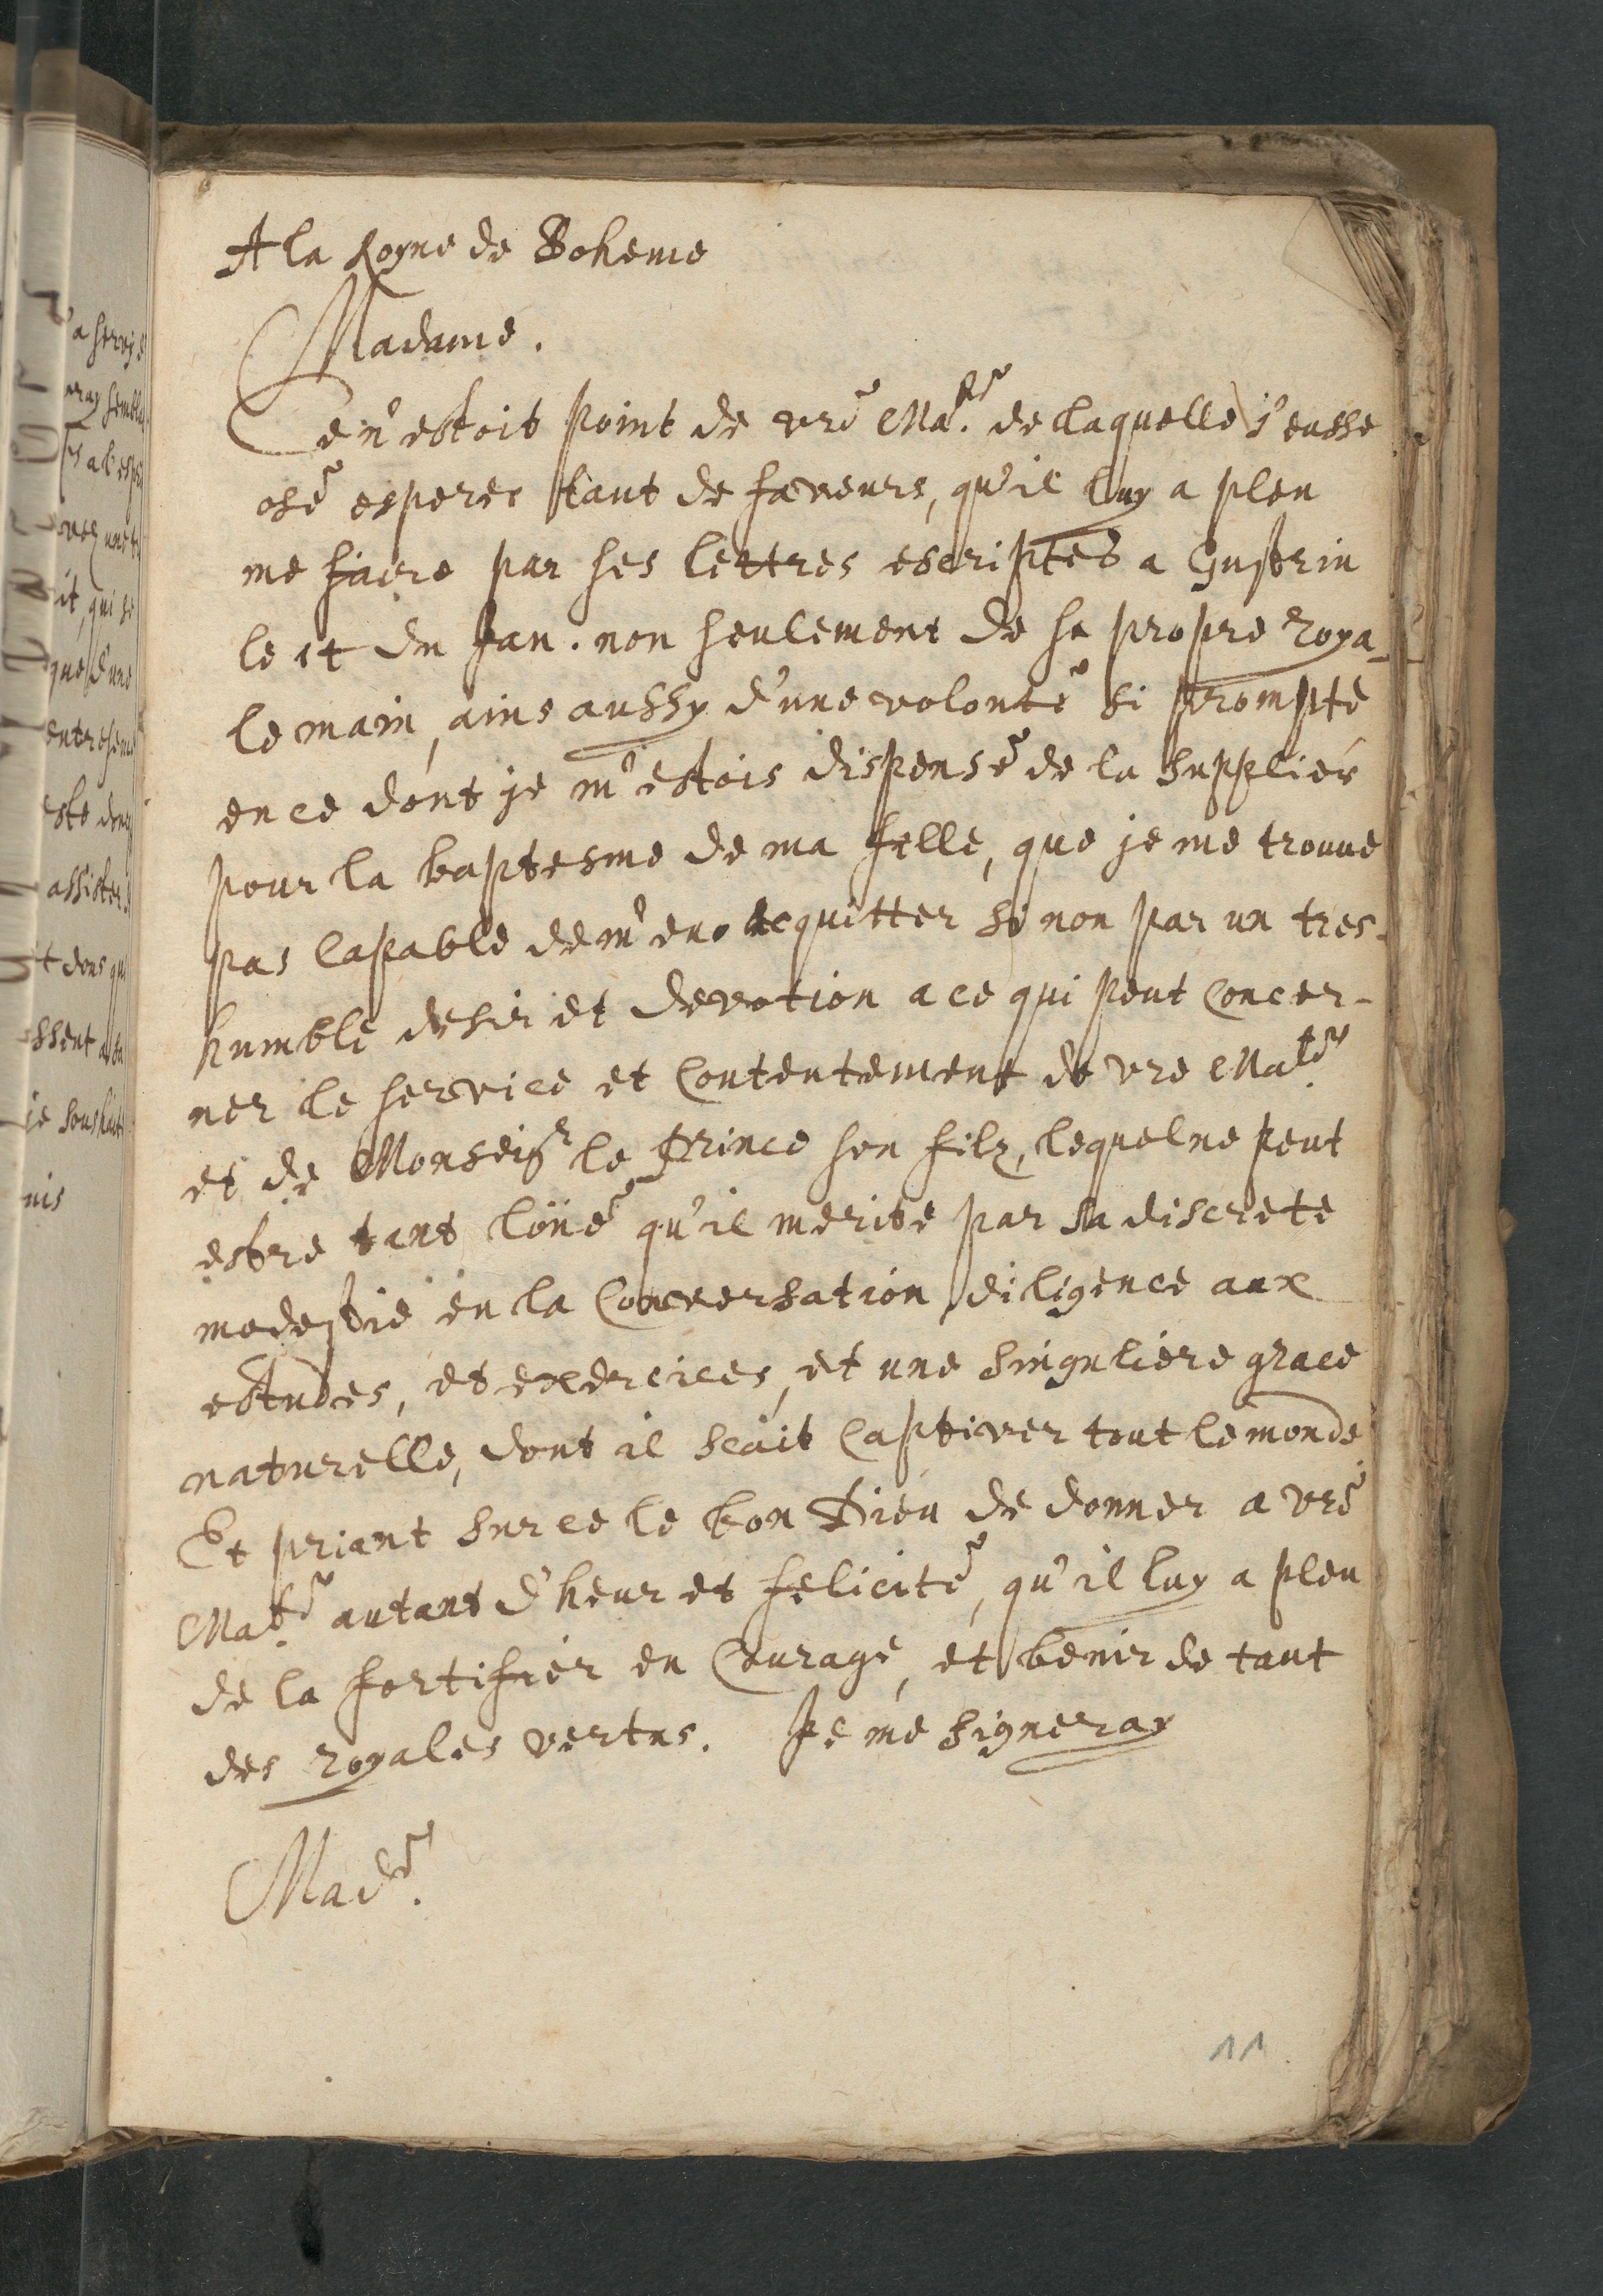 A la Royne de Boheme
Madame.
Ce n'estoit point de vre Ma.té de laquelle j'eusse
osé esperer tant de faveurs, qu'il luy a pleu
me faire par ses lettres escriptes a Custrin
le 14 du Jan. non seulement de sa propre roya-
le main, ains aussy d'une volonté si prompte
en ce dont je m'estois dispensé de la supplier
pour la baptesme de ma fille, que je me trouve
pas capable de m'en acquitter si non par un tres-
humble desir et devotion a ce qui peut concer-
ner le service et contentement de vre Ma.té
et de Monseigr le Prince son filz, lequel ne peut
estre tant loüé qu'il merite par sa discrete
modestie en la conversation, diligence aux
estudes, et exercices, et une singuliere grace
naturelle, dont il scait captiver tout le monde
Et priant sur ce le bon Dieu de donner a vré
Ma.té autant d'heur et felicité, qu'il luy a pleu
de la fortifier en courage, et benir de tant
des royales vertus. Je me signeray
Mad.e
11